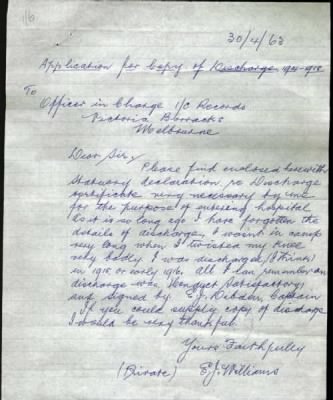 116
30/4/63
Application for Copy of Discharge 1914-1918
To
Officer in Charge I/C Records
Victoria Barracks
Melbourne
Dear Sir,
Please find enclosed herewith
Statuary declaration re Discharge
certificate necessary by me
for the purpose of entering hospital
As it is so long ago I have forgotten the
details of discharge, I wasnt in camp
very long when I twisted my knee
very badly. I was discharged, (I think)
in 1915 or early 1916. All I can remember on
discharge was (Conduct Satisfactory)
and signed by E.J. Captain
If you could supply copy of discharge
I would be very thankful.
Yours Faithfully
(Private) E.J. Williams